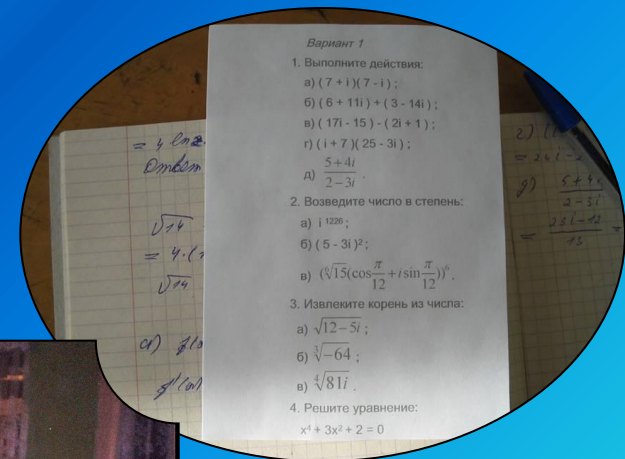 Вариант 1
1. Выполните действия:
а) ( 7 + i )( 7 - i ) ;
б) ( 6 + 11i ) + ( 3 - 14i ) ;
в) ( 17i - 15 ) - ( 2i + 1 ) ;
г) ( i + 7 )( 25 - 3i ) ;
д) \frac{5+4i}{2-3i} .
2. Возведите число в степень:
а) i^{1226} ;
б) ( 5 - 3i )² ;
в) (\sqrt[6]{15}(cos\frac{π}{12} + i sin\frac{π}{12}))^6 .
3. Извлеките корень из числа:
а) \sqrt{12-5i} ;
б) \sqrt[3]{-64} ;
в) \sqrt[4]{81i} .
4. Решите уравнение:
x⁴ + 3x² + 2 = 0
Ответ
√14
= 4·(
√14
а)
г)
= 24i -
д) \frac{5+4i}{2-3i}
= \frac{23i-12}{13} =